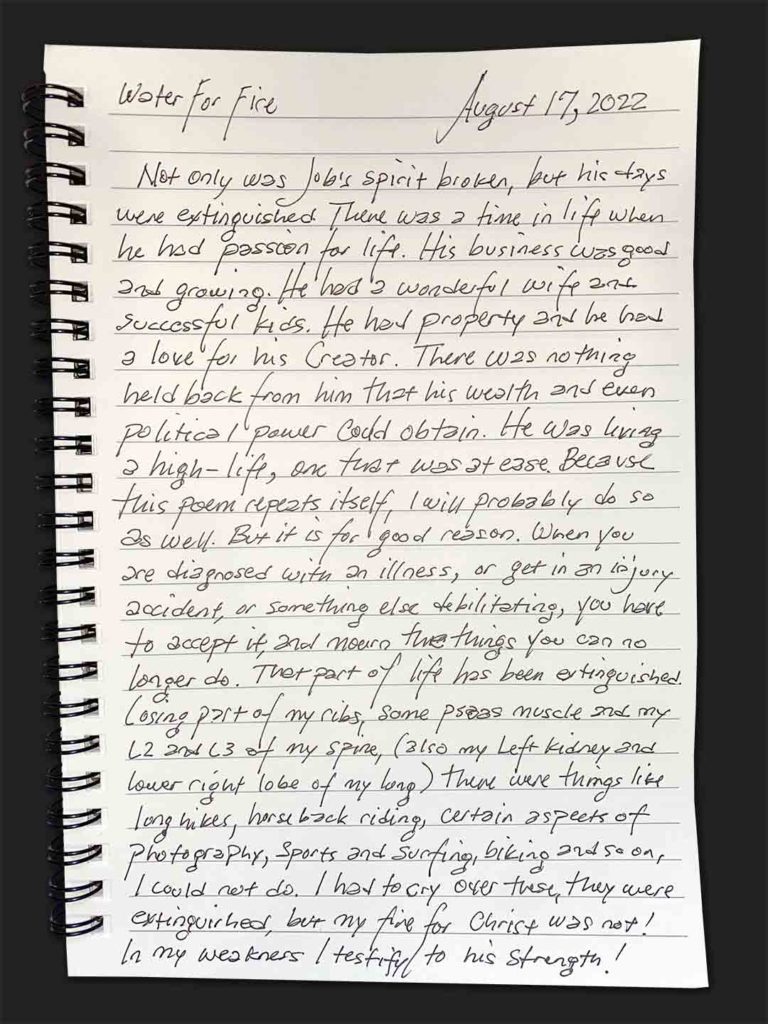 Water For Fire August 17, 2022
Not only was Job's spirit broken, but his days
were extinguished. There was a time in life when
he had passion for life. His business was good
and growing. He had a wonderful wife and
successful kids. He had property and he had
a love for his Creator. There was nothing
held back from him that his wealth and even
political power could obtain. He was living
a high-life, one that was at ease. Because
this poem repeats itself, I will probably do so
as well. But it is for good reason. When you
are diagnosed with an illness, or get in an injury
accident, or something else debilitating, you have
to accept it, and mourn the things you can no
longer do. That part of life has been extinguished.
Losing part of my ribs, some psoas muscle and my
L2 and L3 of my spine, (also my left kidney and
lower right lobe of my lung) there were things like
long hikes, horseback riding, certain aspects of
photography, sports and surfing, biking and so on,
I could not do. I had to cry over these, they were
extinguished, but my fire for Christ was not!
In my weakness I testify to his strength!